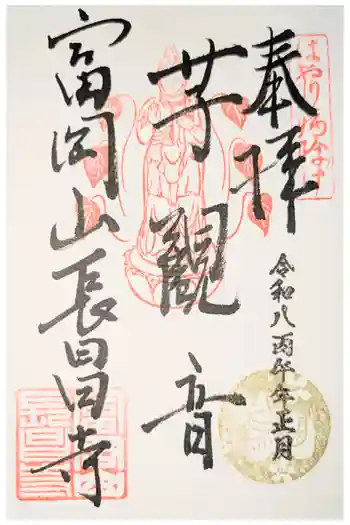 奉拝
はやり病除け
芋観音
令和八丙午年正月
富岡山長昌寺